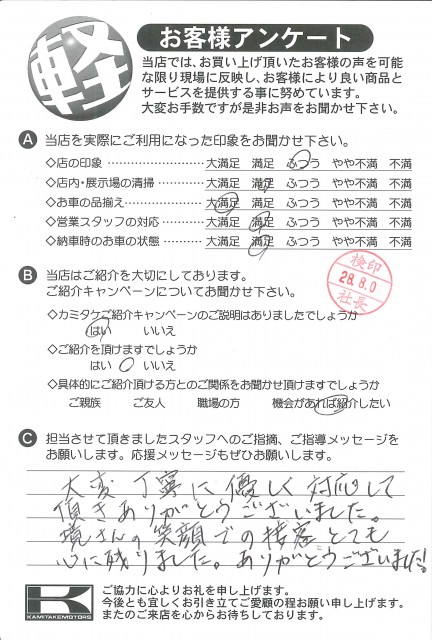 軽
お客様アンケート
当店では、お買い上げ頂いたお客様の声を可能
な限り現場に反映し、お客様により良い商品と
サービスを提供する事に努めています。
大変お手数ですが是非お声をお聞かせ下さい。
A 当店を実際にご利用になった印象をお聞かせ下さい。
◇店の印象 ………………… 大満足 満足 ふつう やや不満 不満
◇店内・展示場の清掃 ……… 大満足 満足 ふつう やや不満 不満
◇お車の品揃え ……………… 大満足 満足 ふつう やや不満 不満
◇営業スタッフの対応 ……… 大満足 満足 ふつう やや不満 不満
◇納車時のお車の状態 ……… 大満足 満足 ふつう やや不満 不満
B 当店はご紹介を大切にしております。
ご紹介キャンペーンについてお聞かせ下さい。
検印
28.8.0
社長
◇カミタケご紹介キャンペーンのご説明はありましたでしょうか
はい いいえ
◇ご紹介を頂けますでしょうか
はい いいえ
◇具体的にご紹介頂ける方とのご関係をお聞かせ頂けますでしょうか
ご親族 ご友人 職場の方 機会があれば紹介したい
C 担当させて頂きましたスタッフへのご指摘、ご指導メッセージを
お願いします。応援メッセージもぜひお願いします。
大変丁寧に優しく対応して
頂きありがとうございました。
境さんの笑顔での接客とても
心に残りました。ありがとうございました!
K
KAMITAKEMOTORS
ご協力に心よりお礼を申し上げます。
今後とも宜しくお引き立てご愛顧の程お願い申し上げます。
またのご来店を心からお待ちしております。